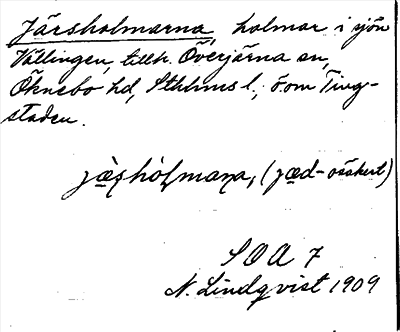 Järsholmarna, holmar i sjön
Vällingen, tillh. Överjärna sn,
Öknebo hd, Sthlms l., ö om Ting-
staden.
(jæd- osäkert)
SOA 7
N. Lindqvist 1909